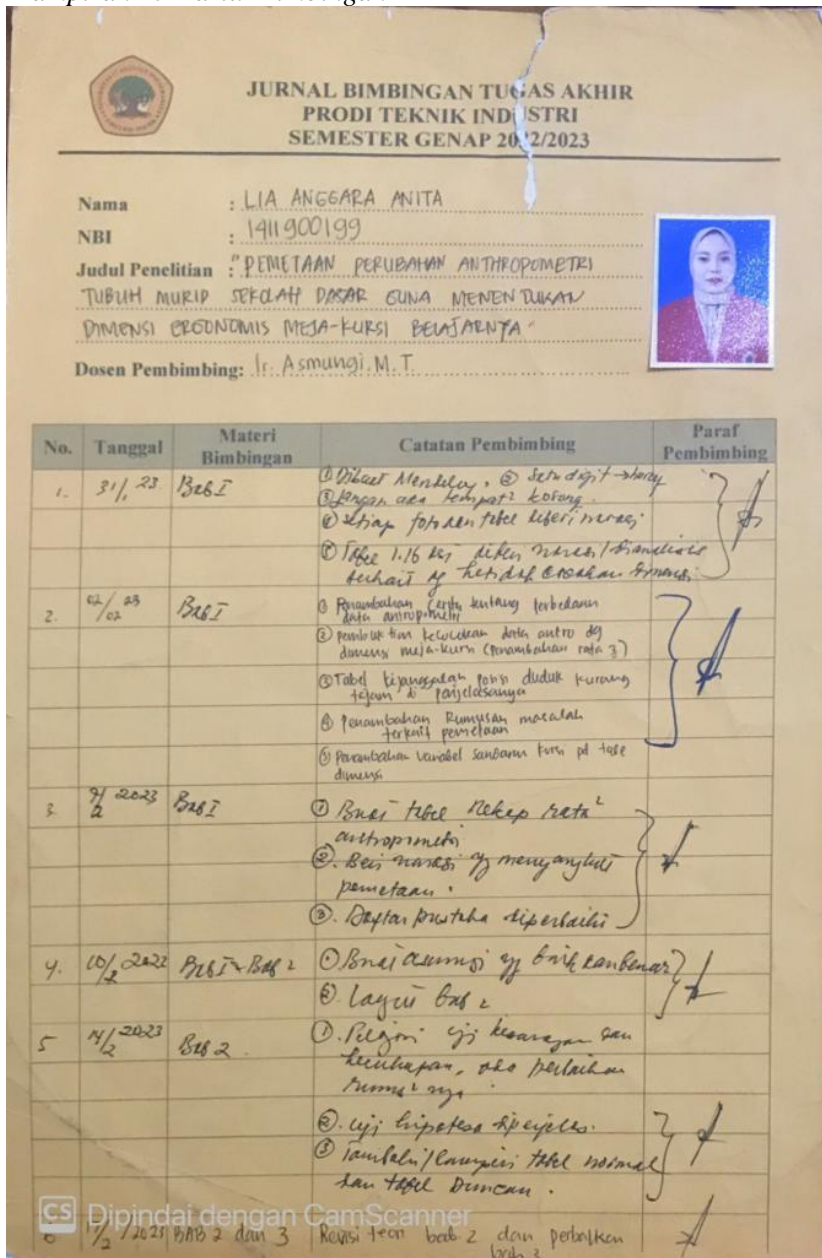 JURNAL BIMBINGAN TUGAS AKHIR
PRODI TEKNIK INDUSTRI
SEMESTER GENAP 2022/2023
Nama : LIA ANGGARA ANITA
NBI : 1411900199
Judul Penelitian : "PEMETAAN PERUBAHAN ANTHROPOMETRI
TUBUH MURID SEKOLAH DASAR GUNA MENENTUKAN
DIMENSI ERGONOMIS MEJA-KURSI BELAJARNYA"
Dosen Pembimbing: Ir. Asmungi, M.T.
No. Tanggal Materi Bimbingan Catatan Pembimbing Paraf Pembimbing
1. 31/1 23 Bab I ① Dibuat Mendeley. ② Satu digit
③ Jangan ada tempat² kosong.
④ Setiap foto dan tabel diberi narasi
⑤ Tabel 1.16 diberi narasi/dianalisis
terkait dg ketidak cocokan dimensi
2. 02/02 23 Bab I ① Penambahan cerita tentang perbedaan
data antropometri
② pembuktian kecocokan data antro dg
dimensi meja-kursi (penambahan rata 2)
③ Tabel kejanggalan posisi duduk kurang
tajam di penjelasanya
④ Penambahan Rumusan masalah
terkait pemetaan
⑤ Penambahan variabel sandaran kursi pd tabel
dimensi
3. 7/2 2023 Bab I ① Buat tabel Rekap rata²
antropometri
②. Beri narasi yg menyangkut
pemetaan.
③. Daftar pustaka diperbaiki
4. 10/2 2023 Bab I + Bab 2 ① Buat asumsi yg baik dan benar
②. Lanjut bab 2
5 14/2 2023 Bab 2. ①. Pelajari uji keseragaman dan
kecukupan, ada perbaikan
rumus² nya
②. Uji hipotesa diperjelas.
③ Tambahi/lampiri tabel normal
dan tabel Duncan.
6 17/2/2023 BAB 2 dan 3 Revisi teori bab 2 dan perbaikan
bab 3
CS Dipindai dengan CamScanner